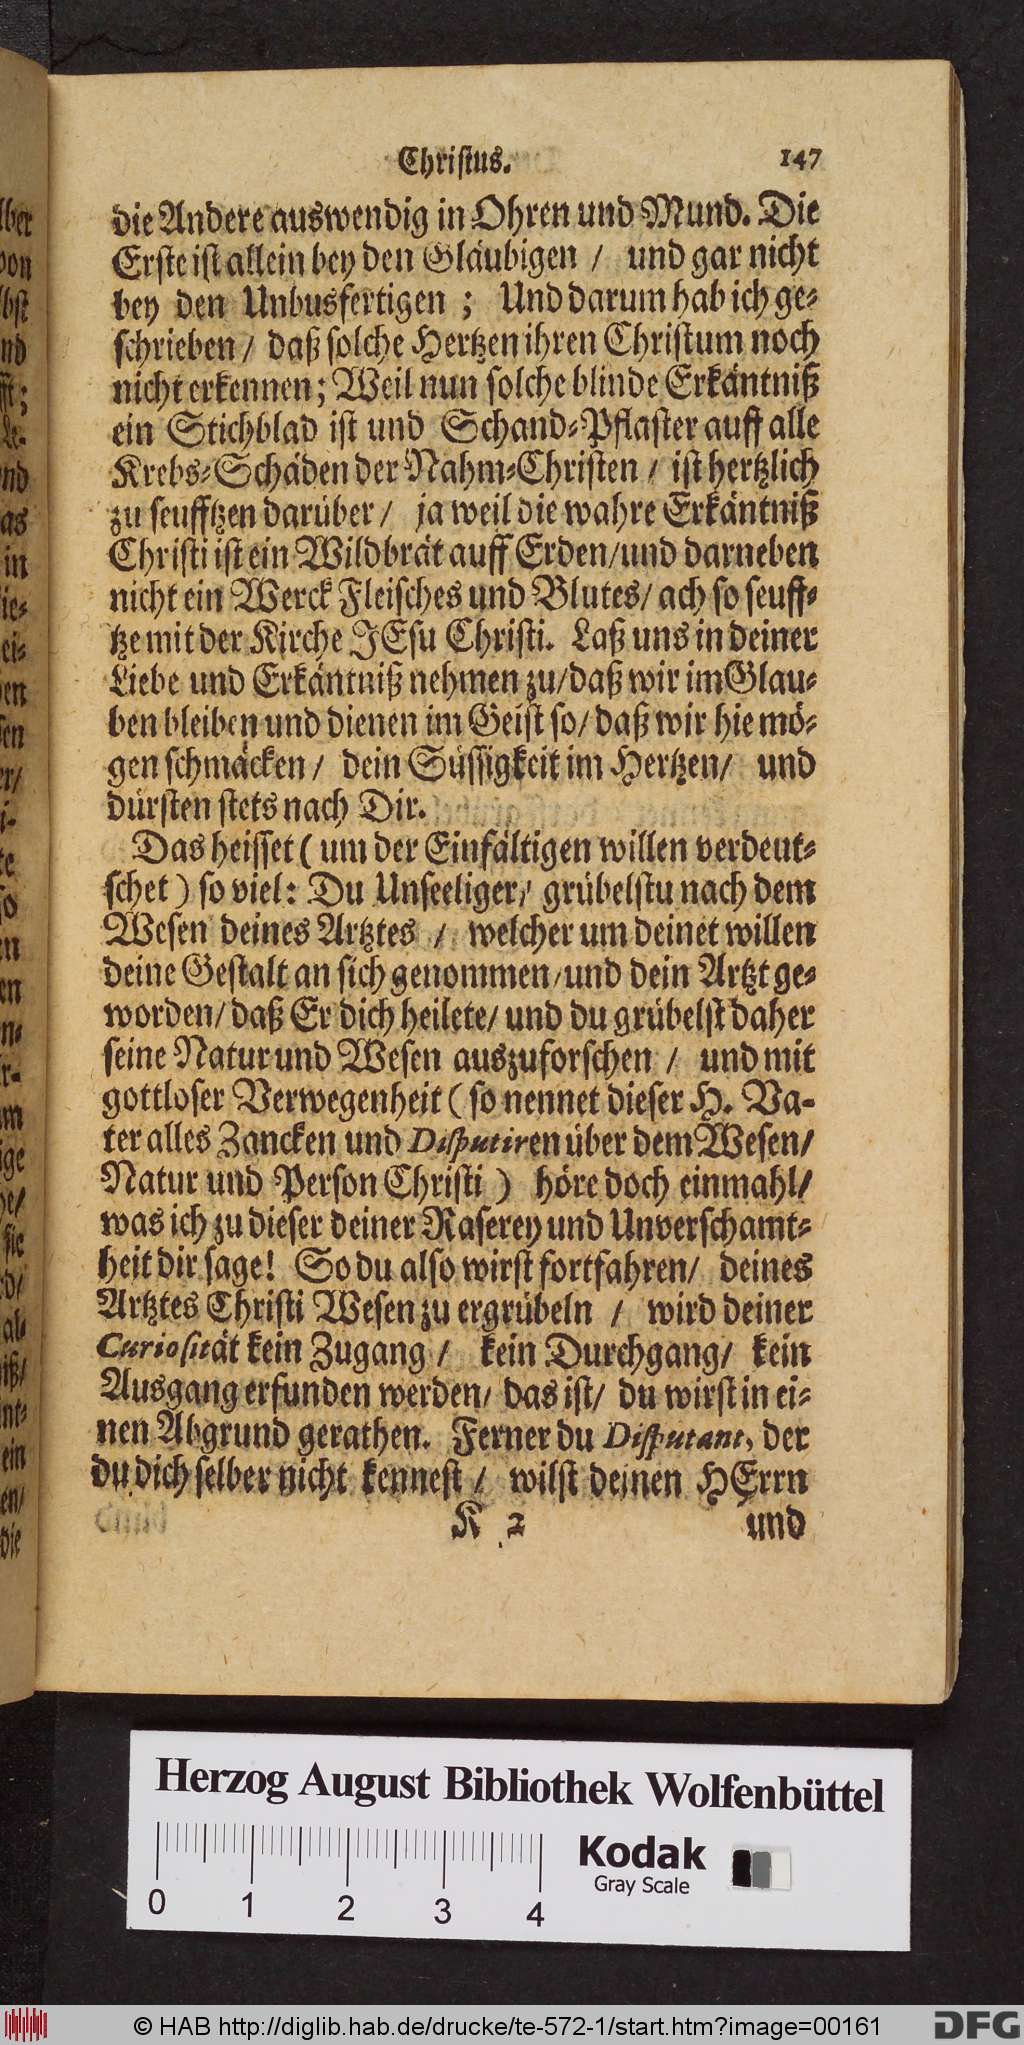 Christus. 147
die Andere auswendig in Ohren und Mund. Die
Erste ist allein bey den Gläubigen / und gar nicht
bey den Unbusfertigen ; Und darum hab ich ge-
schrieben / daß solche Hertzen ihren Christum noch
nicht erkennen; Weil nun solche blinde Erkäntniß
ein Stichblad ist und Schand-Pflaster auff alle
Krebs-Schäden der Nahm-Christen / ist hertzlich
zu seufftzen darüber / ja weil die wahre Erkäntniß
Christi ist ein Wildbrät auff Erden/und darneben
nicht ein Werck Fleisches und Blutes/ ach so seuff-
tze mit der Kirche JEsu Christi. Laß uns in deiner
Liebe und Erkäntniß nehmen zu/daß wir im Glau-
ben bleiben und dienen im Geist so/ daß wir hie mö-
gen schmäcken / dein Süssigkeit im Hertzen/ und
dürsten stets nach Dir.
Das heisset ( um der Einfältigen willen verdeut-
schet ) so viel: Du Unseeliger/ grübelstu nach dem
Wesen deines Artztes / welcher um deinet willen
deine Gestalt an sich genommen/und dein Artzt ge-
worden/ daß Er dich heilete/ und du grübelst daher
seine Natur und Wesen auszuforschen / und mit
gottloser Verwegenheit ( so nennet dieser H. Va-
ter alles Zancken und Disputiren über dem Wesen/
Natur und Person Christi ) höre doch einmahl/
was ich zu dieser deiner Raserey und Unverschamt-
heit dir sage! So du also wirst fortfahren/ deines
Artztes Christi Wesen zu ergrübeln / wird deiner
Curiosität kein Zugang / kein Durchgang/ kein
Ausgang erfunden werden/ das ist/ du wirst in ei-
nen Abgrund gerathen. Ferner du Disputant, der
du dich selber nicht kennest / wilst deinen HErrn
K 2 und
Herzog August Bibliothek Wolfenbüttel
Kodak
Gray Scale
0 1 2 3 4
© HAB http://diglib.hab.de/drucke/te-572-1/start.htm?image=00161
DFG